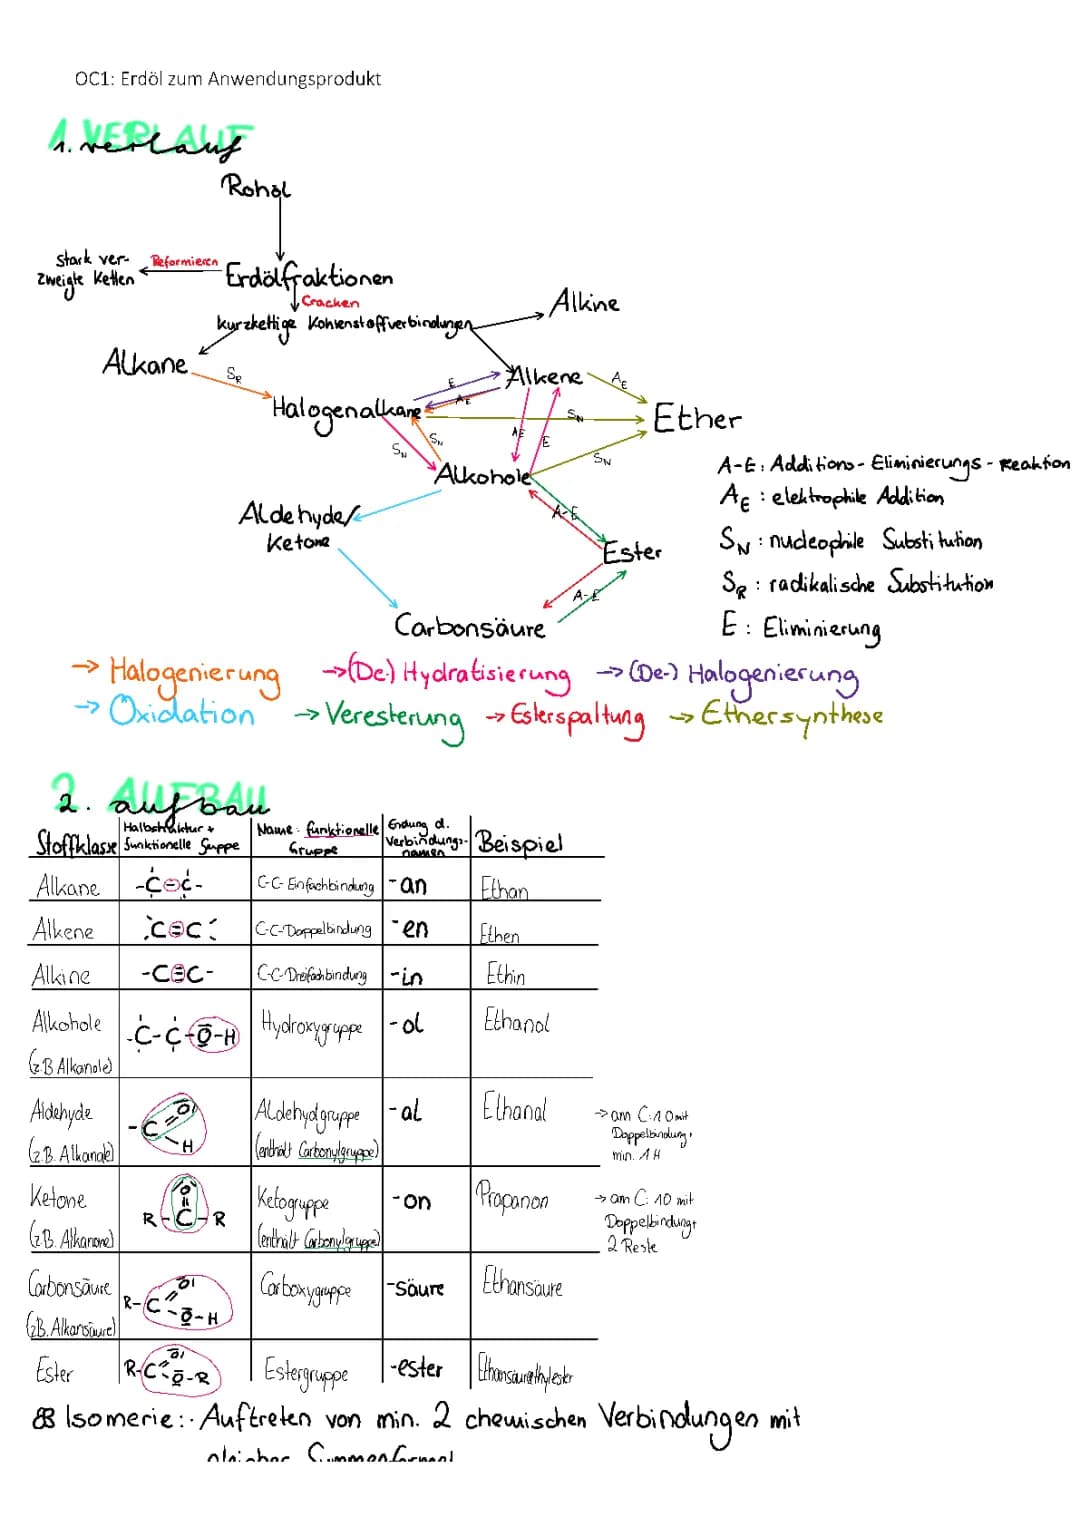 OC1: Erdöl zum Anwendungsprodukt
1. VERLAUF
1. verlauf
Rohöl
stark ver-
zweigte Ketten
Reformieren
Erdölfraktionen
Cracken
kurzkettige Kohlenstoffverbindungen
Alkine
Alkane
SR
E
Alkene
AE
Halogenalkane
AE
SN
Ether
SN
SN
AE
E
SN
Alkohole
A-E: Additions-Eliminierungs-reaktion
AE: elektrophile Addition
SN: nucleophile Substitution
SR: radikalische Substitution
E: Eliminierung
Aldehyde/
Ketone
A-E
Ester
A-E
Carbonsäure
→ Halogenierung → (De-) Hydratisierung → (De-) Halogenierung
→ Oxidation → Veresterung → Esterspaltung → Ethersynthese
2. AUFBAU
2. aufbau
Stoffklasse
Halbstruktur +
funktionelle Gruppe
Name funktionelle
Gruppe
Endung d.
Verbindungs-
namen
Beispiel
Alkane -C-C- C-C-Einfachbindung -an Ethan
Alkene C=C C-C-Doppelbindung -en Ethen
Alkine -C≡C- C-C-Dreifachbindung -in Ethin
Alkohole -C-C-O-H Hydroxygruppe -ol Ethanol
(z.B Alkanole)
Aldehyde -C=O H Aldehydgruppe -al Ethanal → am C: 1 O mit
(z.B. Alkanale) (enthält Carbonylgruppe) Doppelbindung,
min. 1 H
Ketone O R-C-R Ketogruppe -on Propanon → am C: 1O mit
(z.B. Alkanone) (enthält Carbonylgruppe) Doppelbindung+
2 Reste
Carbonsäure R-C=O O-H Carboxygruppe -säure Ethansäure
(z.B. Alkansäure)
Ester R-C=O O-R Estergruppe -ester Ethansäureethylester
Isomerie: Auftreten von min. 2 chemischen Verbindungen mit
gleicher Summenformel